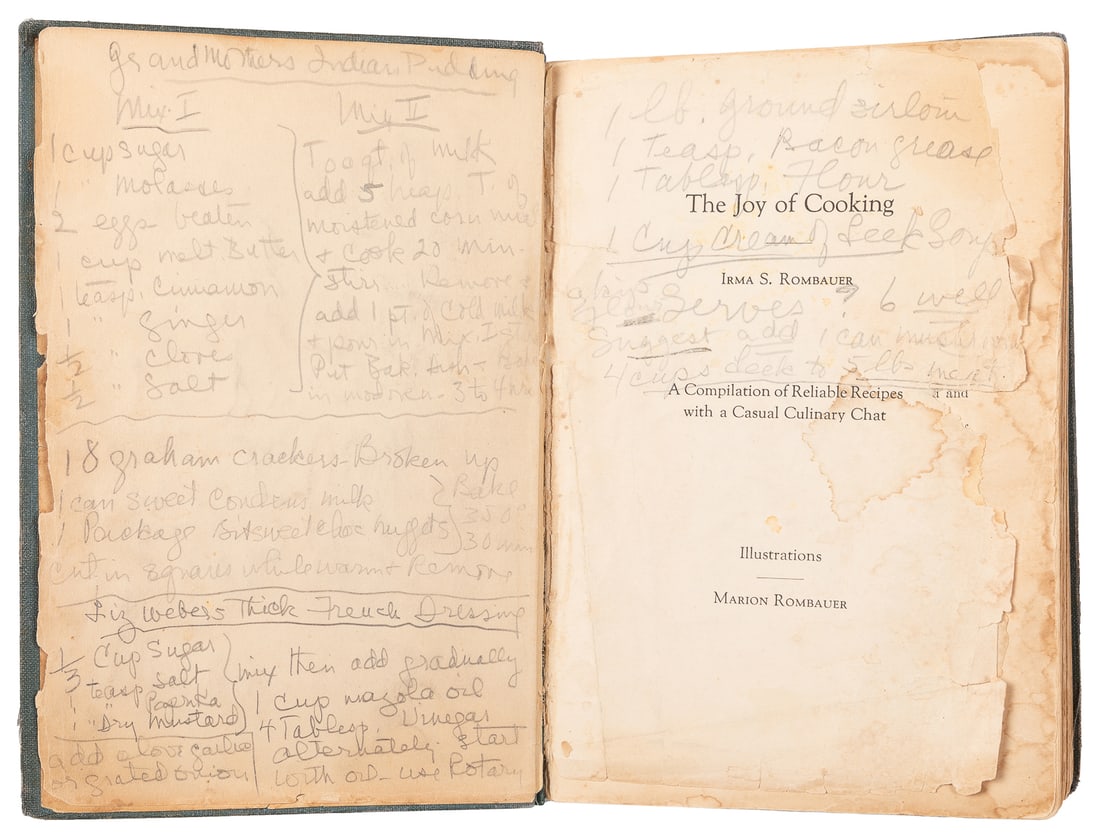 Grandmothers Indian Pudding
Mix I
1 cup sugar
1 " Molasses
2 eggs beaten
1 cup melt Butter
1 teasp. Cinnamon
1 " Ginger
1/2 " Cloves
1/2 " Salt
Mix II
To a qt. of milk
add 5 heap. T. of
moistened corn meal
+ Cook 20 min-
Stirr. Remove +
add 1 pt. of Cold milk
+ pour in Mix. I
Put Bak. dish -
in mod oven - 3 to 4 hrs
18 graham crackers - Broken up
1 can sweet Condens milk
1 Package Bitsweet choc nuggets
Bake
350°
30 min
cut in squares while warm + Remove
Liz Weber's Thick French Dressing
1/3 Cup Sugar
1 teasp salt
1 " Paprika
1 " Dry Mustard
add clove garlic
or grated onion
mix then add gradually
1 cup mazola oil
4 Tablesp. Vinegar
alternately. start
with oil - use Rotary
1 lb. ground sirloin
1 Teasp. Bacon grease
1 Tablesp. Flour
The Joy of Cooking
1 Cup Cream of Leek Soup
Irma S. Rombauer
Serves ? 6 well
Suggest add 1 can mushrooms
4 cups leek to 5 lbs meat
A Compilation of Reliable Recipes a and
with a Casual Culinary Chat
Illustrations
Marion Rombauer